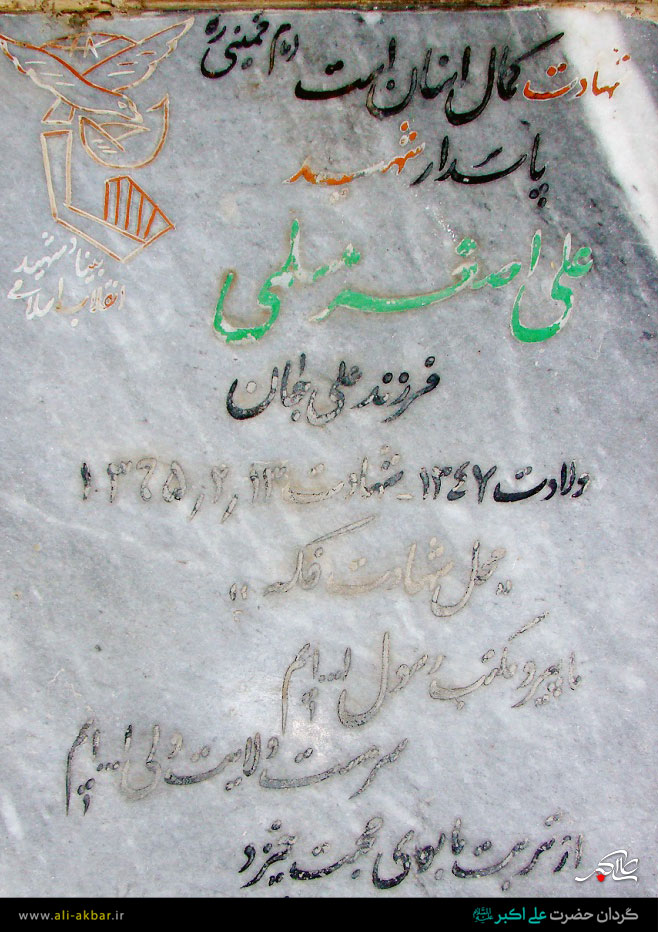 شهادت کمال انسان است امام خمینی ره
پاسدار شهید
علی اصغر سلمی
بنیاد شهید
انقلاب اسلامی
فرزند علی جان
ولادت ۱۳۴۷ - شهادت ۱۳٫۲٫۱۳۶۵
محل شهادت فکه
ما پیرو مکتب رسول ا... ایم
سرمست ولایت ولی ا... ایم
از تربت ما بوی محبت خیزد
www.ali-akbar.ir
گردان حضرت علی اکبر